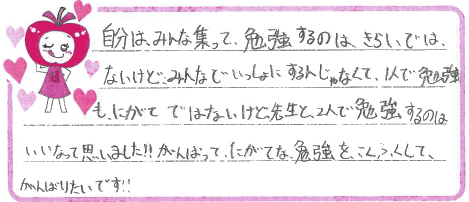 自分は、みんな集って、勉強するのは、きらいでは、
ないけど、みんなでいっしょにするんじゃなくて、1人で勉強
も、にがてではないけど、先生と、2人で勉強するのは
いいなって思いました!!がんばって、にがてな、勉強を、こくふくして、
がんばりたいです!!